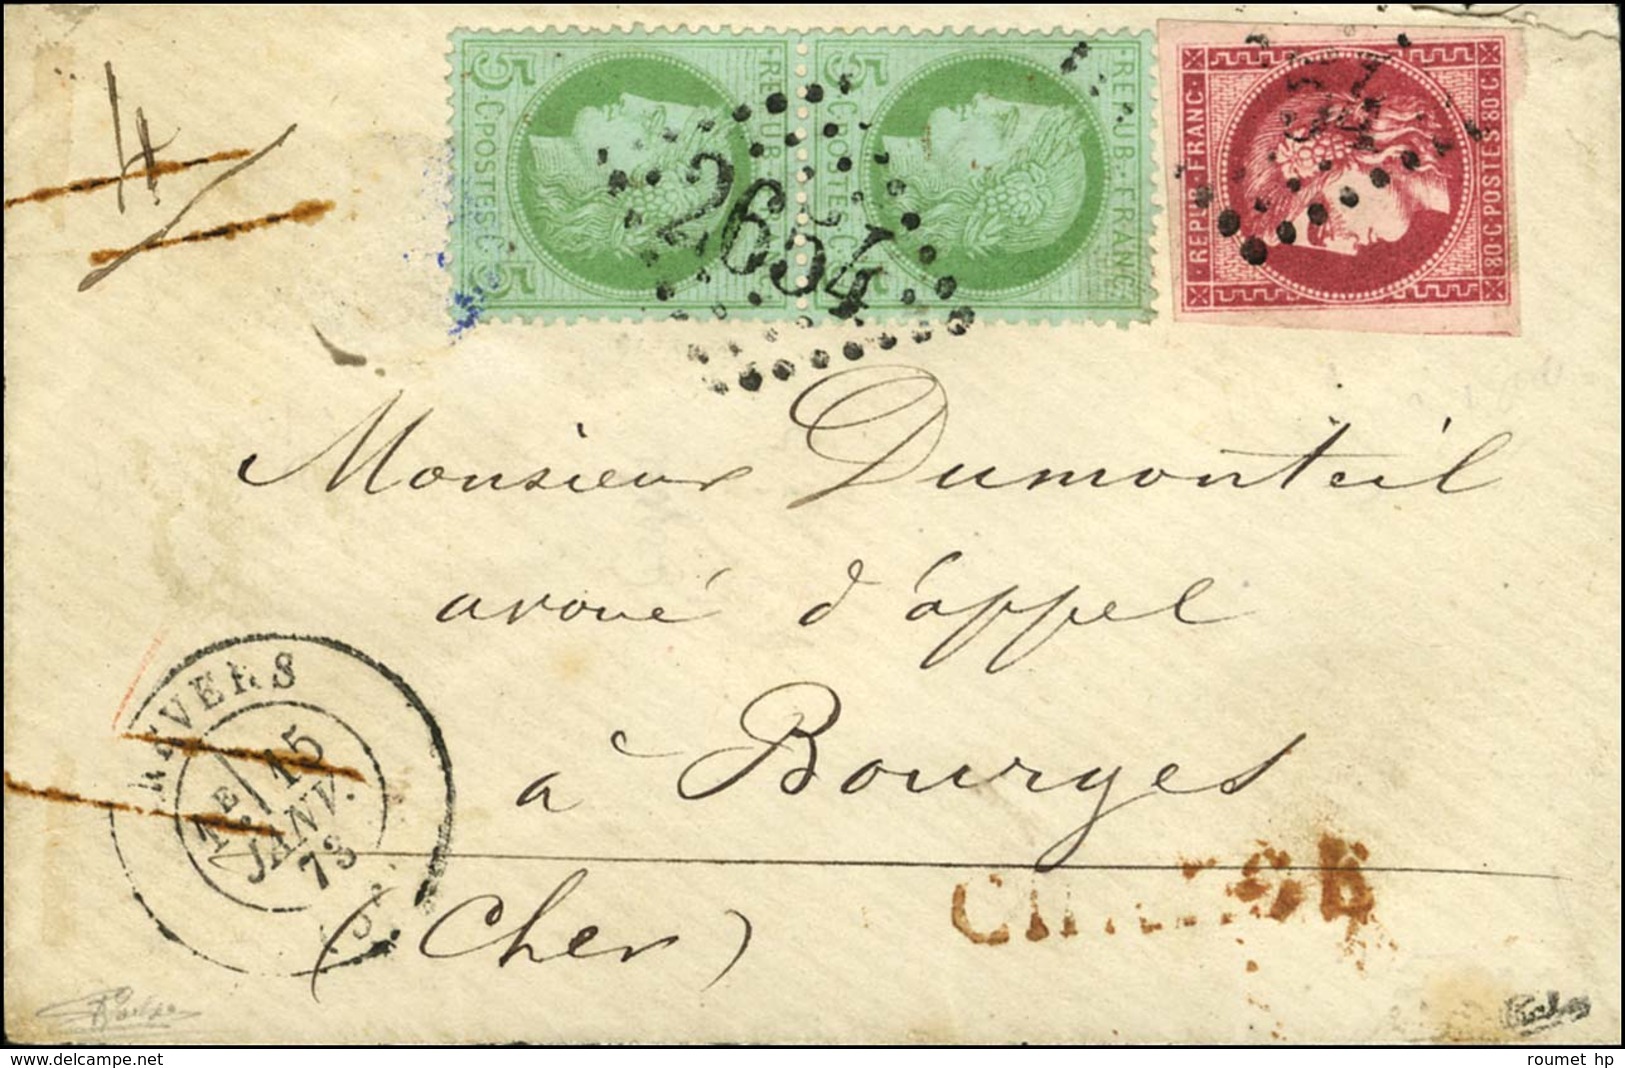 5 · C · POSTES · 5 · C
REPUB · FRANC ·
5 · C · POSTES · 5 · C
· REPUB · FRANC ·
· REPUB · FRANC ·
80 · C · POSTES · 80 · C
2654
Monsieur Dumonteil
avoué d'appel
à Bourges
(Cher)
NEVERS
1E
15
JANV.
73
CHARGÉ
roumet hp
www.delcampe.net